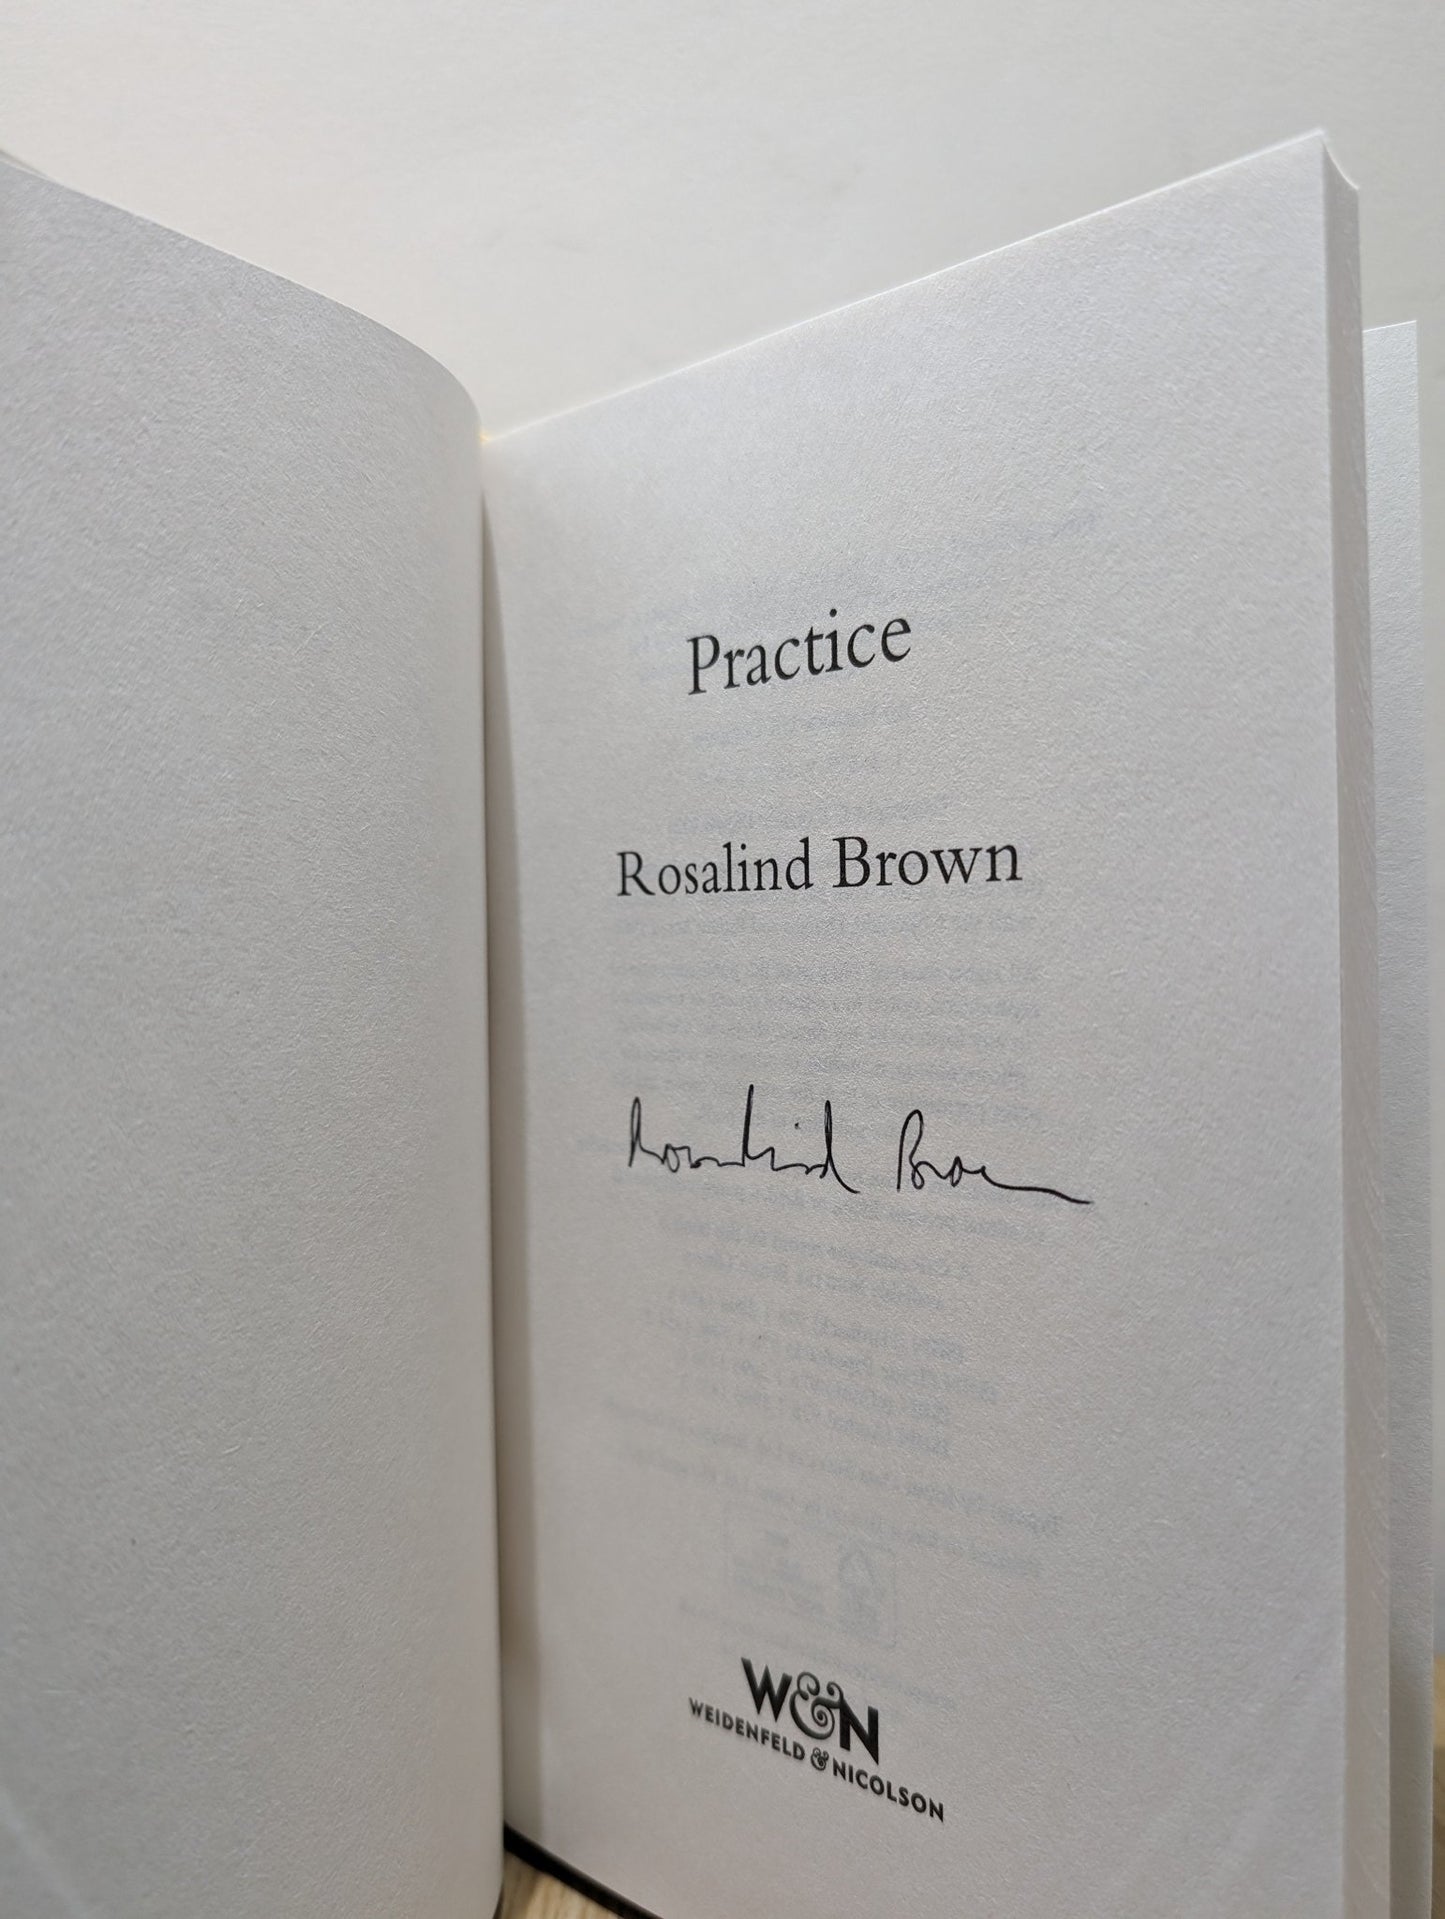 Practice
Rosalind Brown
Rosalind Brown
W&N
WEIDENFELD & NICOLSON